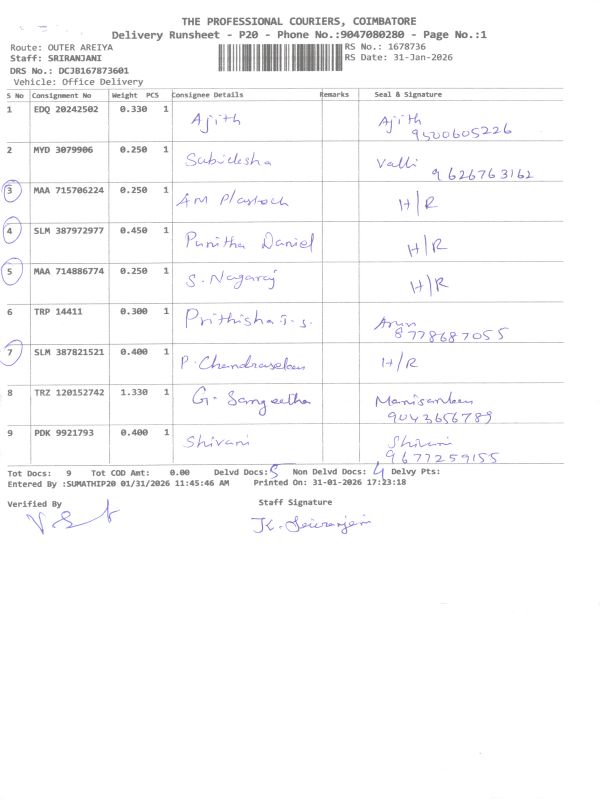 THE PROFESSIONAL COURIERS, COIMBATORE
Delivery Runsheet - P20 - Phone No.:9047080280 - Page No.:1
Route: OUTER AREIYA
RS No.: 1678736
Staff: SRIRANJANI
RS Date: 31-Jan-2026
DRS No.: DCJB167873601
Vehicle: Office Delivery
S No Consignment No Weight PCS Consignee Details Remarks Seal & Signature
1 EDQ 20242502 0.330 1 Ajith Ajith
9500605226
2 MYD 3079906 0.250 1 Valli
9626763162
3 MAA 715706224 0.250 1 AM H/R
4 SLM 387972977 0.450 1 Punitha Daniel H/R
5 MAA 714886774 0.250 1 S. Nagaraj H/R
6 TRP 14411 0.300 1 Prithisha Arun
8778687055
7 SLM 387821521 0.400 1 P. H/R
8 TRZ 120152742 1.330 1 G. Sangeetha
9043656789
9 PDK 9921793 0.400 1 Shivani Shivani
9677259155
Tot Docs: 9 Tot COD Amt: 0.00 Delvd Docs: 5 Non Delvd Docs: 4 Delvy Pts:
Entered By :SUMATHIP20 01/31/2026 11:45:46 AM Printed On: 31-01-2026 17:23:18
Verified By Staff Signature